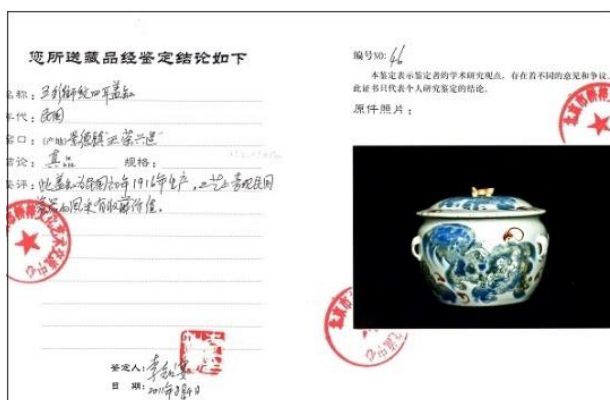 您所送藏品经鉴定结论如下
名称：五彩狮纹四耳盖缸
年代：民国
窑口：(产地)景德镇
结论：真品 规格：
评：此盖缸为民国初年1916年生产，工艺上表现民国
瓷器的风采有收藏价值。
鉴定人：李知宴
日期：2011年8月4日
编号NO: 46
本鉴定表示鉴定者的学术研究观点，存在着不同的意见和争议。
此证书只代表个人研究鉴定的结论。
原件照片：